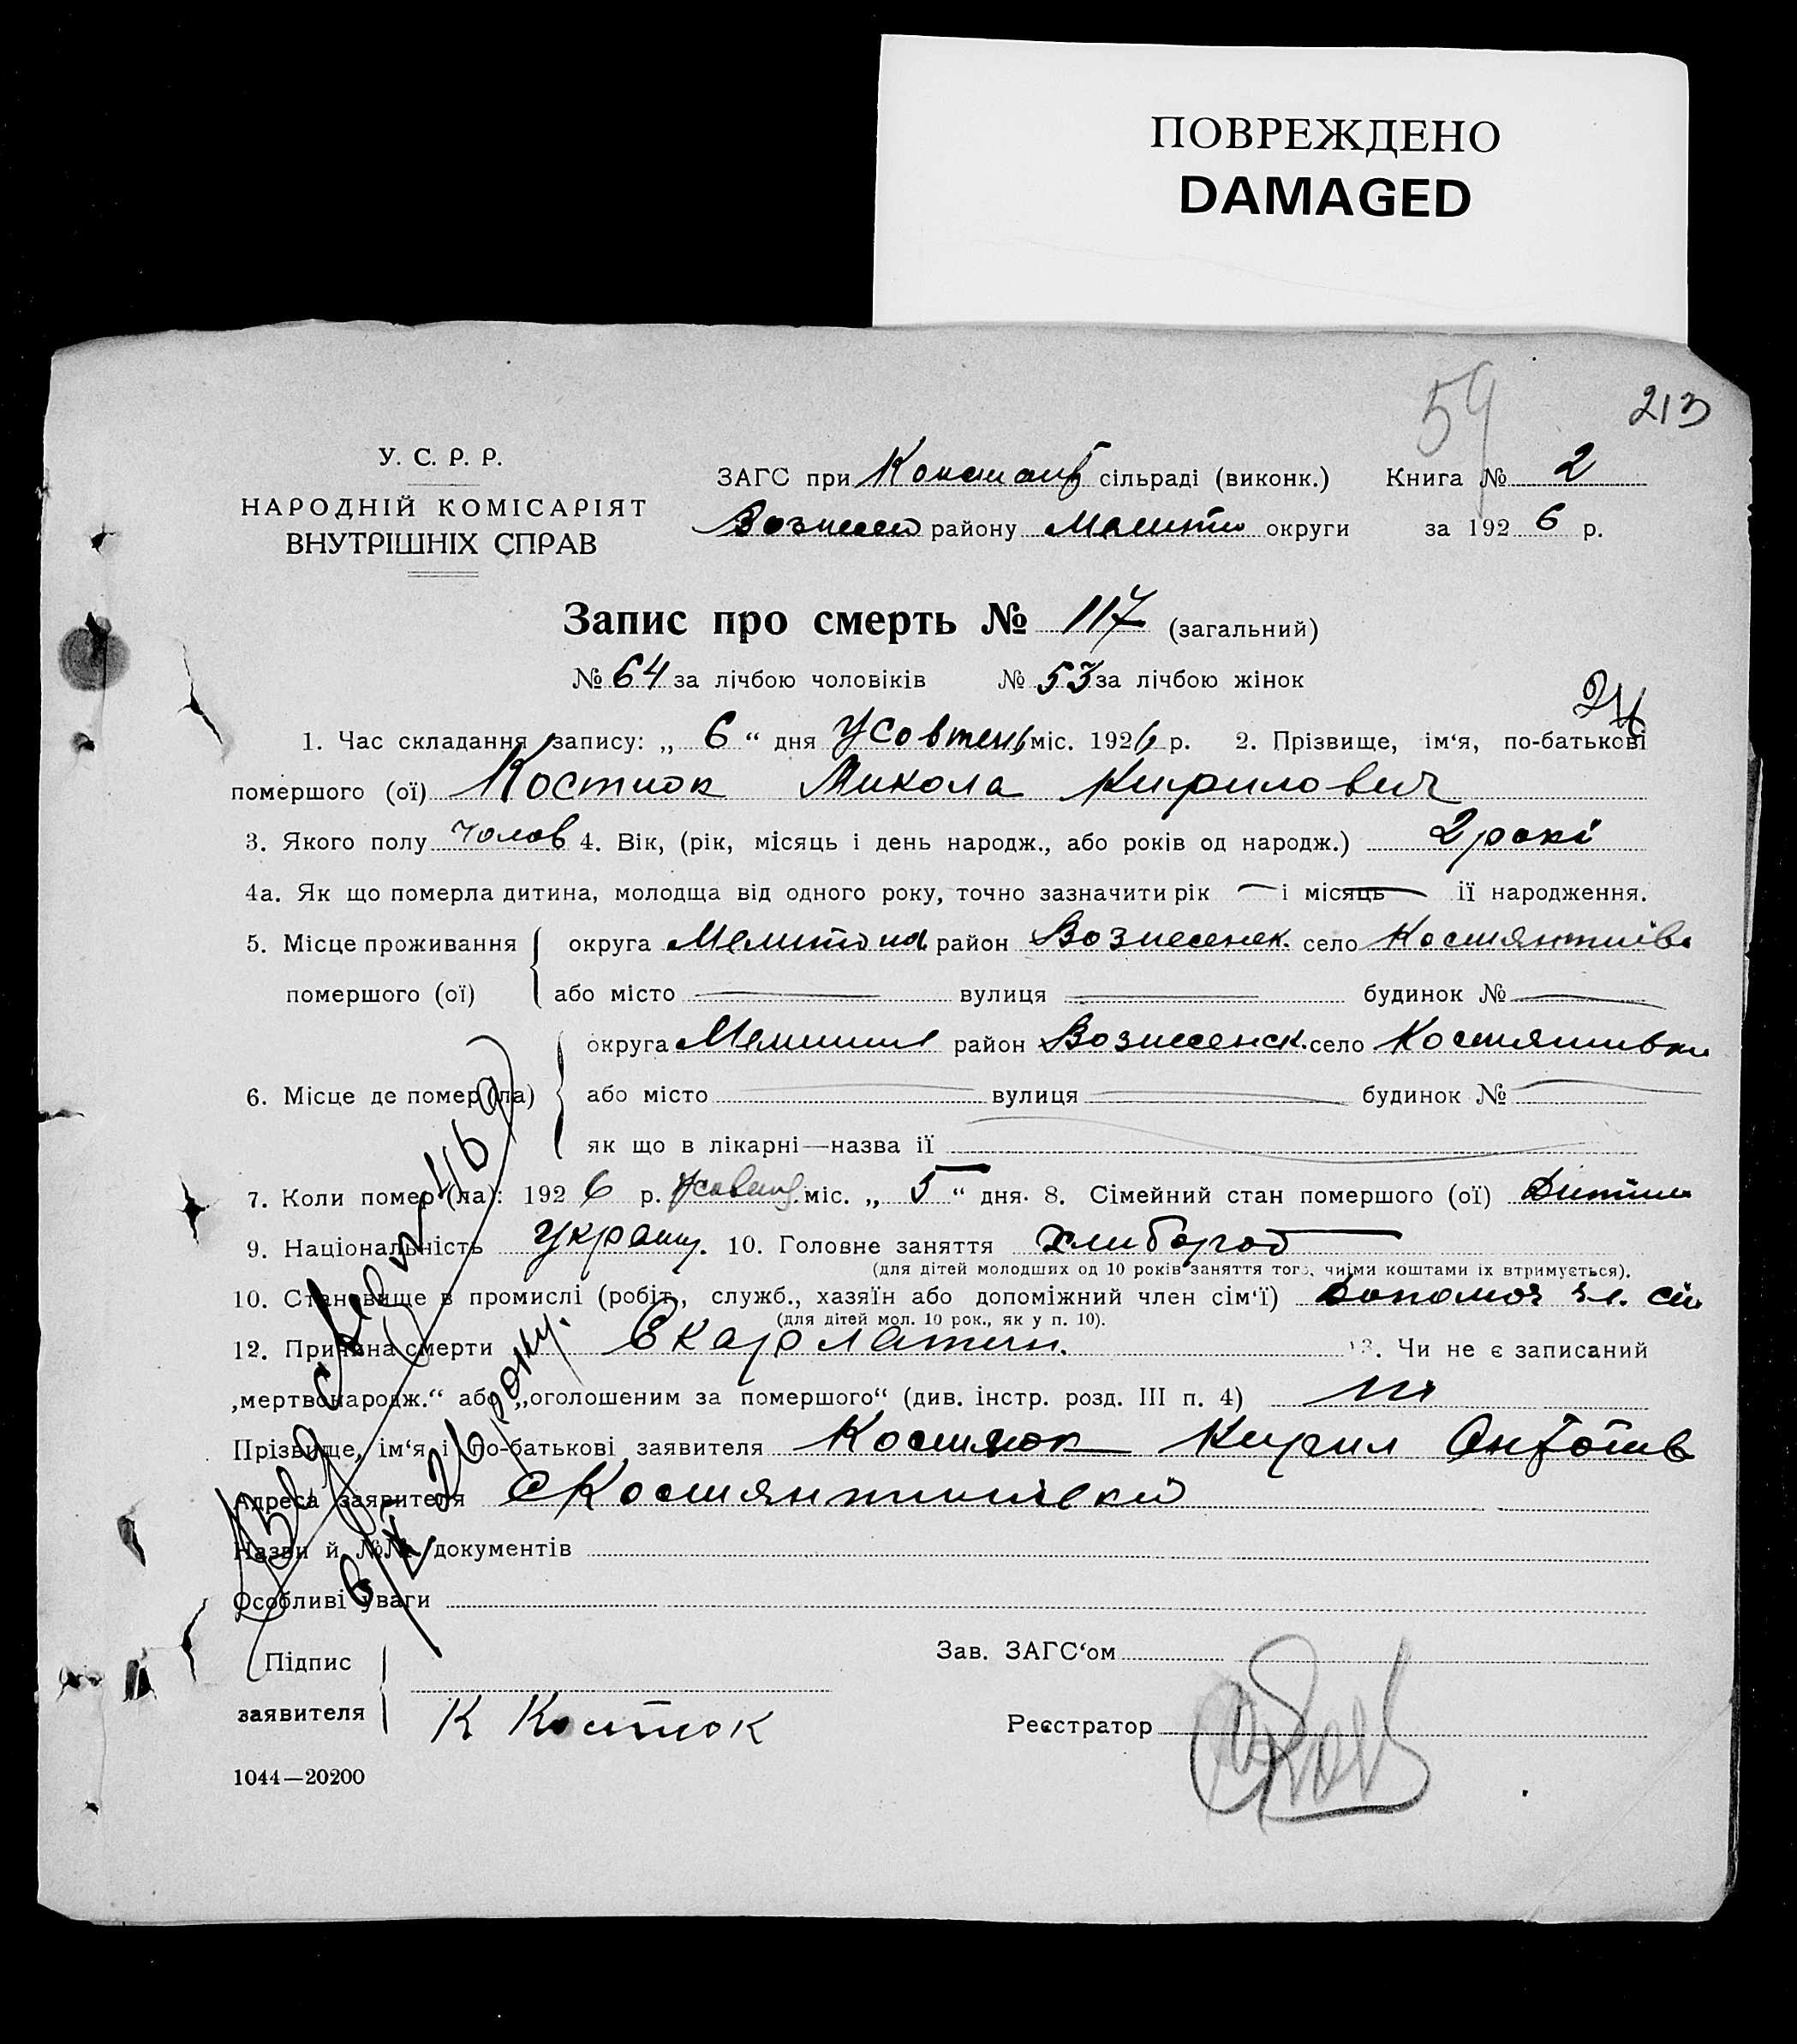 ПОВРЕЖДЕНО
DAMAGED
59 213
У. С. Р. Р.
НАРОДНІЙ КОМІСАРІЯТ
ВНУТРІШНІХ СПРАВ
ЗАГС при сільраді (виконк.) Книга № 2
району округи за 1926 р.
Запис про смерть № 117 (загальний)
№ 64 за лічбою чоловіків № 53 за лічбою жінок
1. Час складання запису: „ 6 “ дня Жовтень міс. 1926 р. 2. Прізвище, ім‘я, по-батькові
помершого (ої) Костюк Микола Кирилович
3. Якого полу чолов 4. Вік, (рік, місяць і день народж., або років од народж.) 2 рокі
4а. Як що померла дитина, молодща від одного року, точно зазначити рік — і місяць — її народження.
5. Місце проживання помершого (ої) округа район Вознесенск. село
або місто вулиця будинок №
6. Місце де помер (ла) округа район Вознесенск. село
або місто вулиця будинок №
як що в лікарні—назва її
7. Коли помер (ла): 1926 р. міс. „ 5 “ дня. 8. Сімейний стан помершого (ої) Дитина
9. Національність Украин. 10. Головне заняття хлибороб
(для дітей молодших од 10 років заняття того, чиїми коштами їх втримується).
10. Становище в промислі (робіт., служб., хазяїн або допоміжний член сім‘ї) допомож чл. сім
(для дітей мол. 10 рок., як у п. 10).
12. Причина смерти Скарлатин. 13. Чи не є записаний
„мертвонародж.“ або „оголошеним за помершого“ (див. інстр. розд. III п. 4) ні
Прізвище, ім‘я і по-батькові заявителя Костюк Кирил
Адреса заявителя
Назви й №№ документів
Особливі уваги
Підпис
заявителя К Костюк
Зав. ЗАГС‘ом
Реєстратор
1044—20200